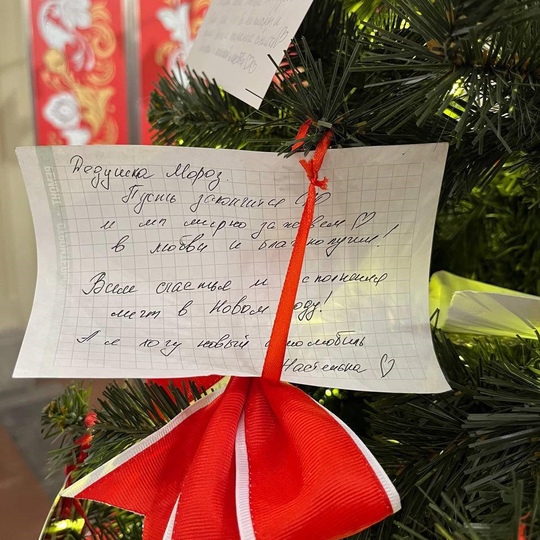 Дедушка Мороз.
Пусть закончится СВО
и мы мирно заживем ♡
в любви и благополучии!
Всем счастья и исполнения
мечт в Новом году!
А я хочу новый автомобиль
Настенька ♡